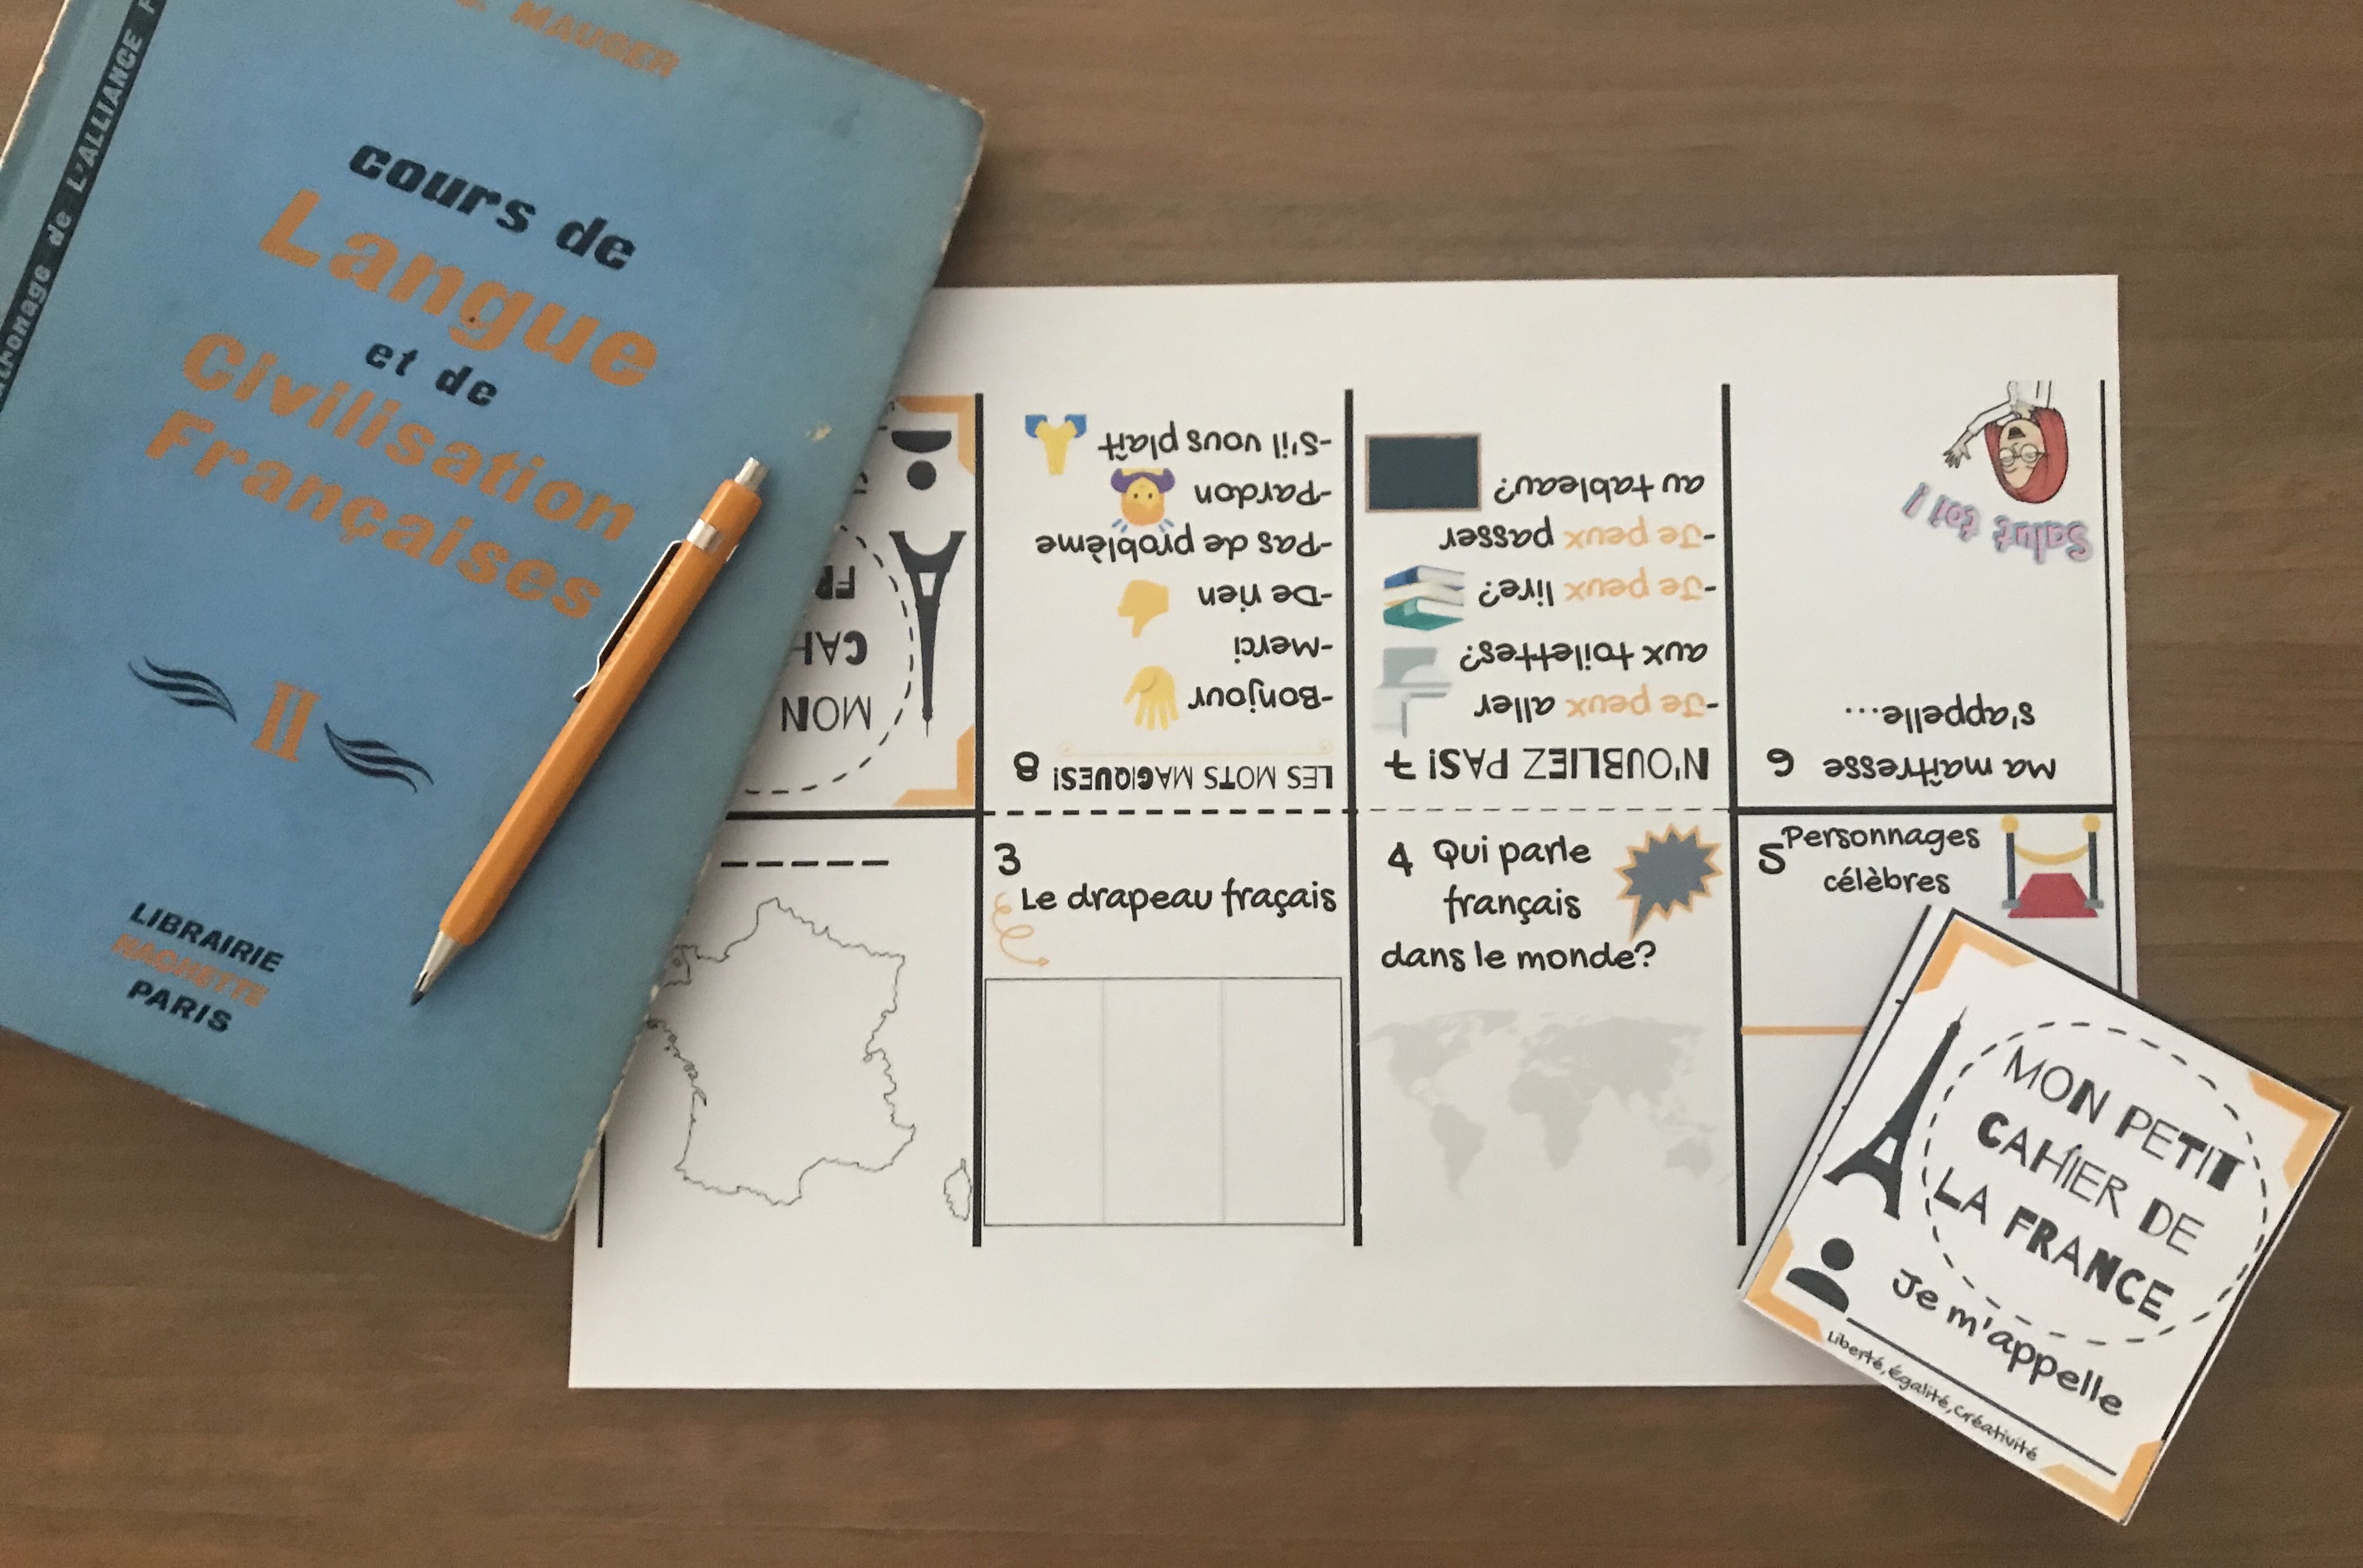 MAUGER
de L'ALLIANCE
cours de
Langue
et de
Civilisation
Françaises
II
LIBRAIRIE
HACHETTE
PARIS
MON
LES MOTS MAGIQUES! 8
-Bonjour
-Merci
-De rien
-Pas de problème
-Pardon
-S'il vous plaît
N'OUBLIEZ PAS! 7
-Je peux aller
aux toilettes?
-Je peux lire?
-Je peux passer
au tableau?
Ma maîtresse 6
s'appelle...
Salut toi !
3
Le drapeau fraçais
4 Qui parle
français
dans le monde?
5 Personnages
célèbres
MON PETIT
CAHIER DE
LA FRANCE
Je m'appelle
Liberté, égalité, créativité